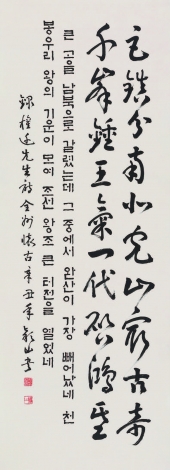 巨鎮分南北完山最古奇
千峯鍾王氣一代啓鴻基
큰 고을 남북으로 갈렸는데 그 중에서 완산이 가장 빼어났네 천
봉우리 왕의 기운이 모여 조선 왕조 큰 터전을 일었네
錄權近先生詩全州懷古辛丑年 山書